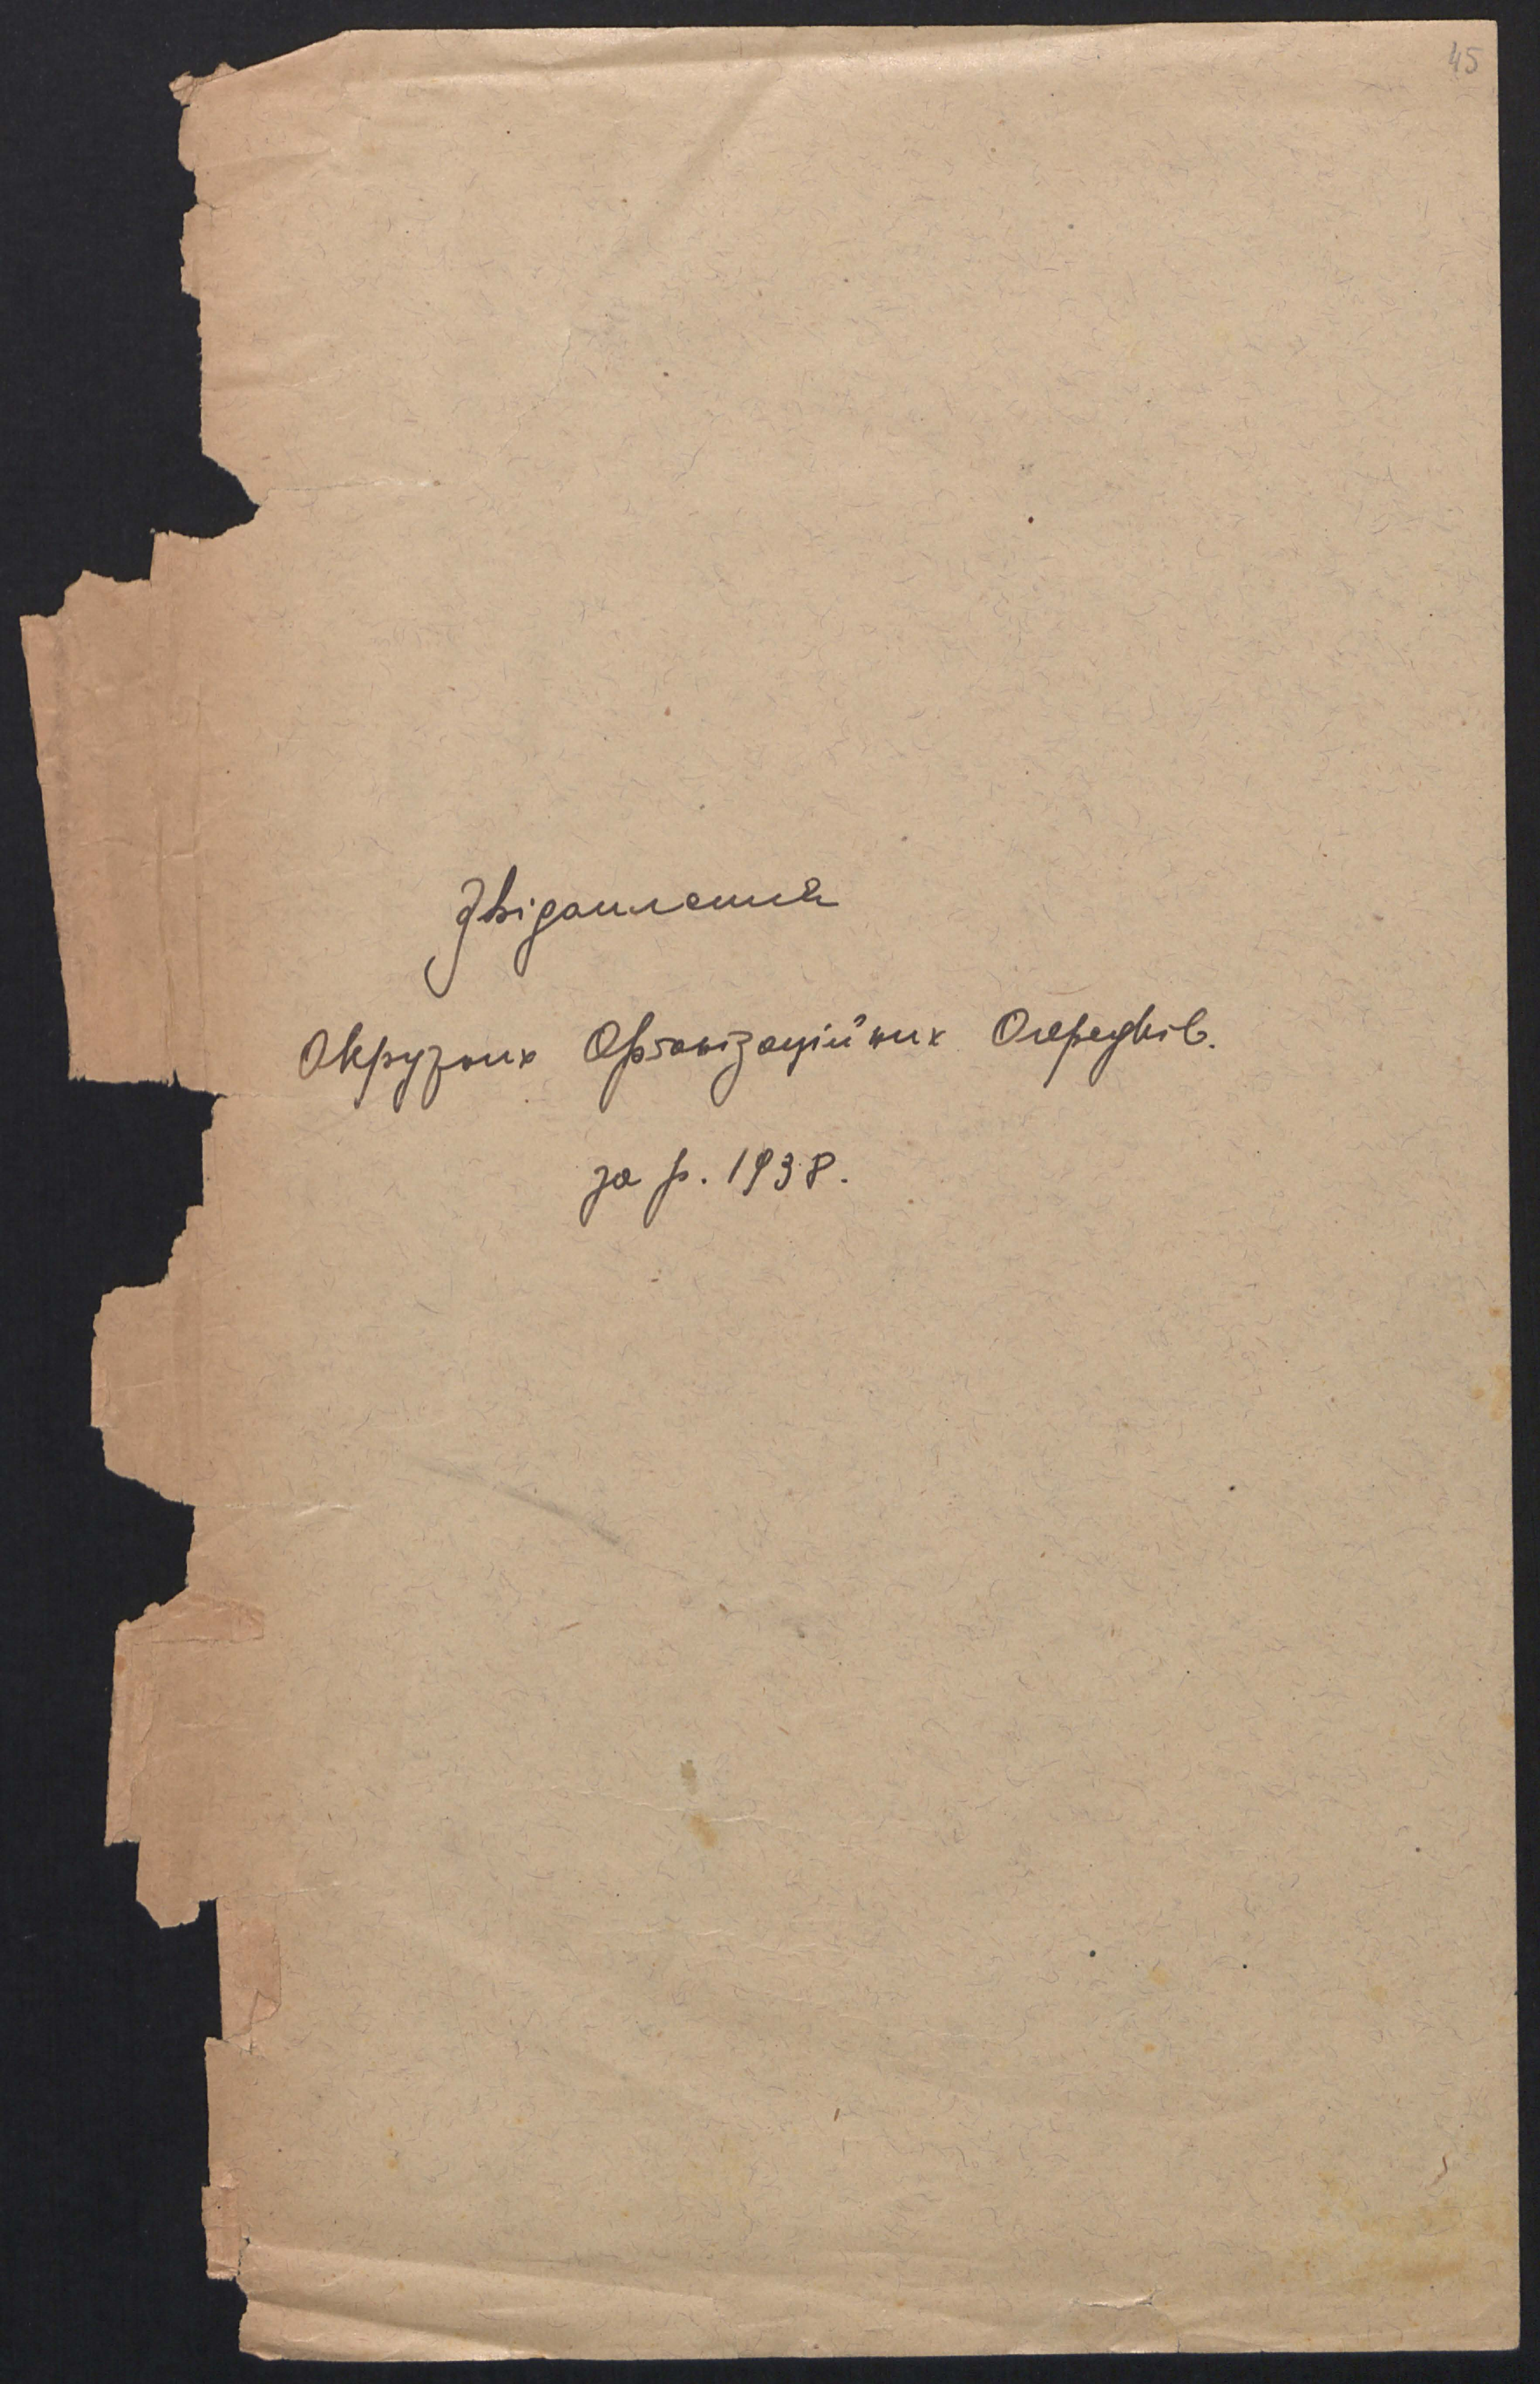 45
Звідомлення
Окружних Організаційних Осередків.
за р. 1938.